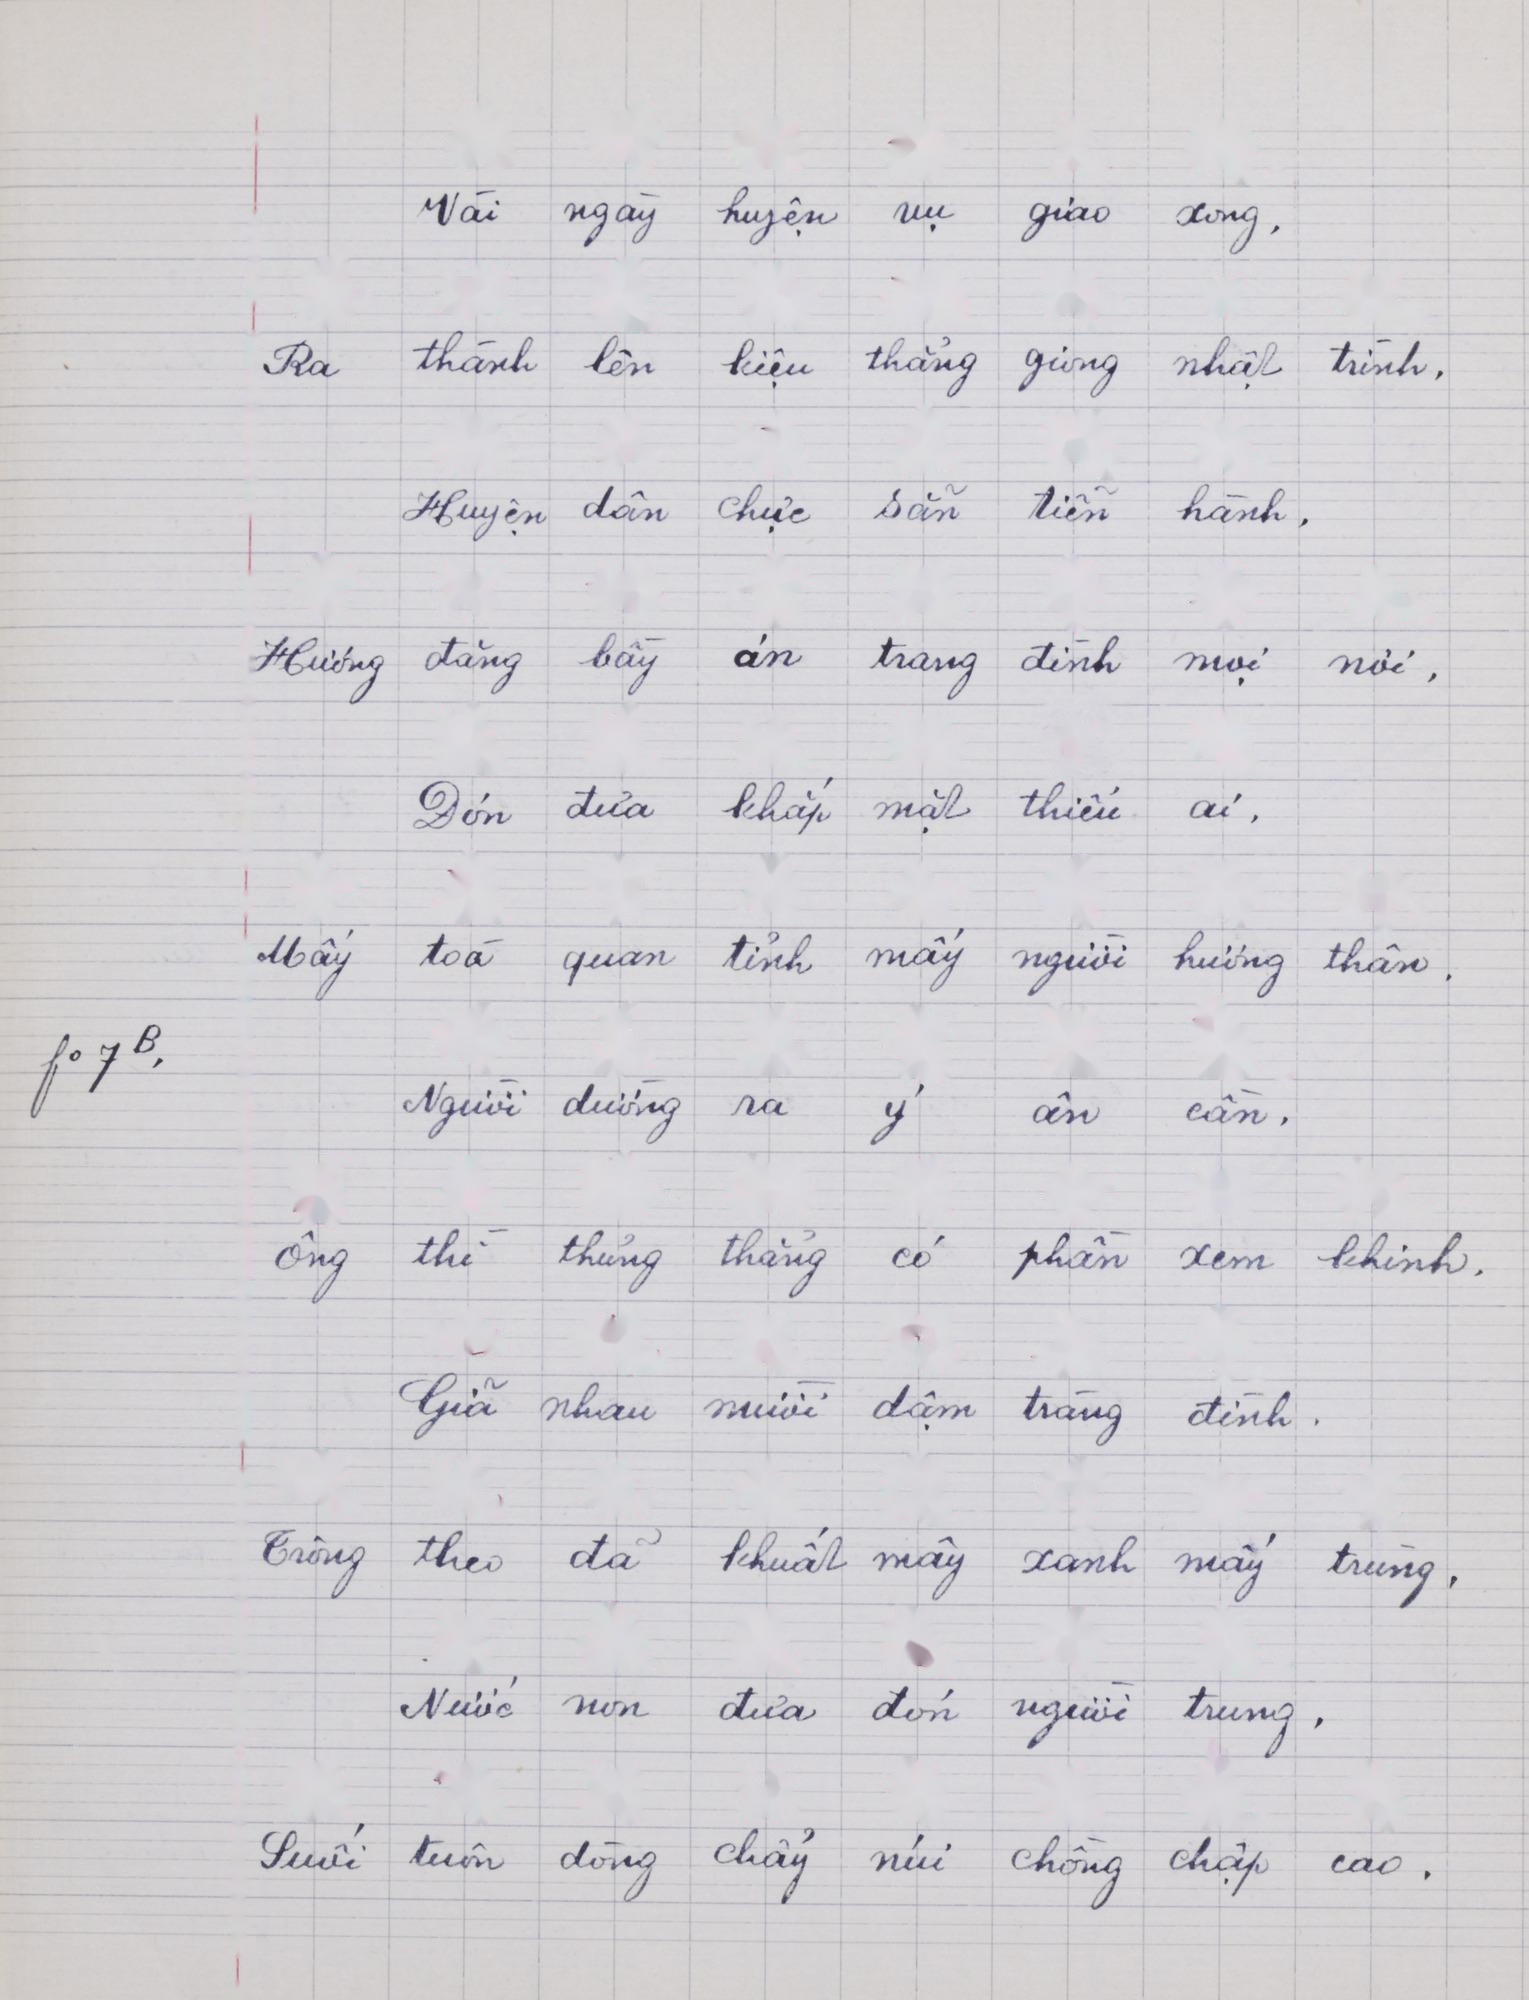 Vài ngày huyện vụ giao xong,
Ra thành lên kiệu thẳng giong nhật trình,
Huyện dân chực sẵn tiễn hành,
Hương đăng bầy án trang đình mọi nơi,
Đón đưa khắp mặt thiếu ai,
Mấy toà quan tỉnh mấy người hương thân,
fº 7 B,
Người dường ra ý ân cần,
Ông thì thủng thẳng có phần xem khinh,
Giã nhau mười dậm tràng đình.
Trông theo đã khuất mây xanh mấy trùng,
Nước non đưa đón người trung,
Suối tuôn dòng chẩy núi chồng chập cao,